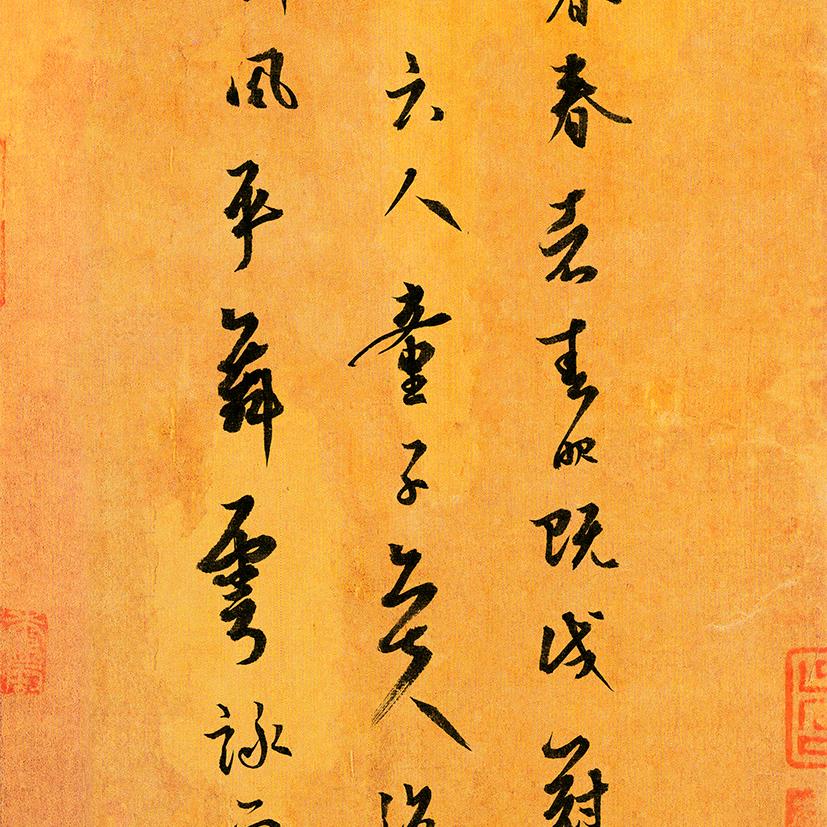 春者春服既成冠
六人童子六七人浴
風乎舞雩詠而